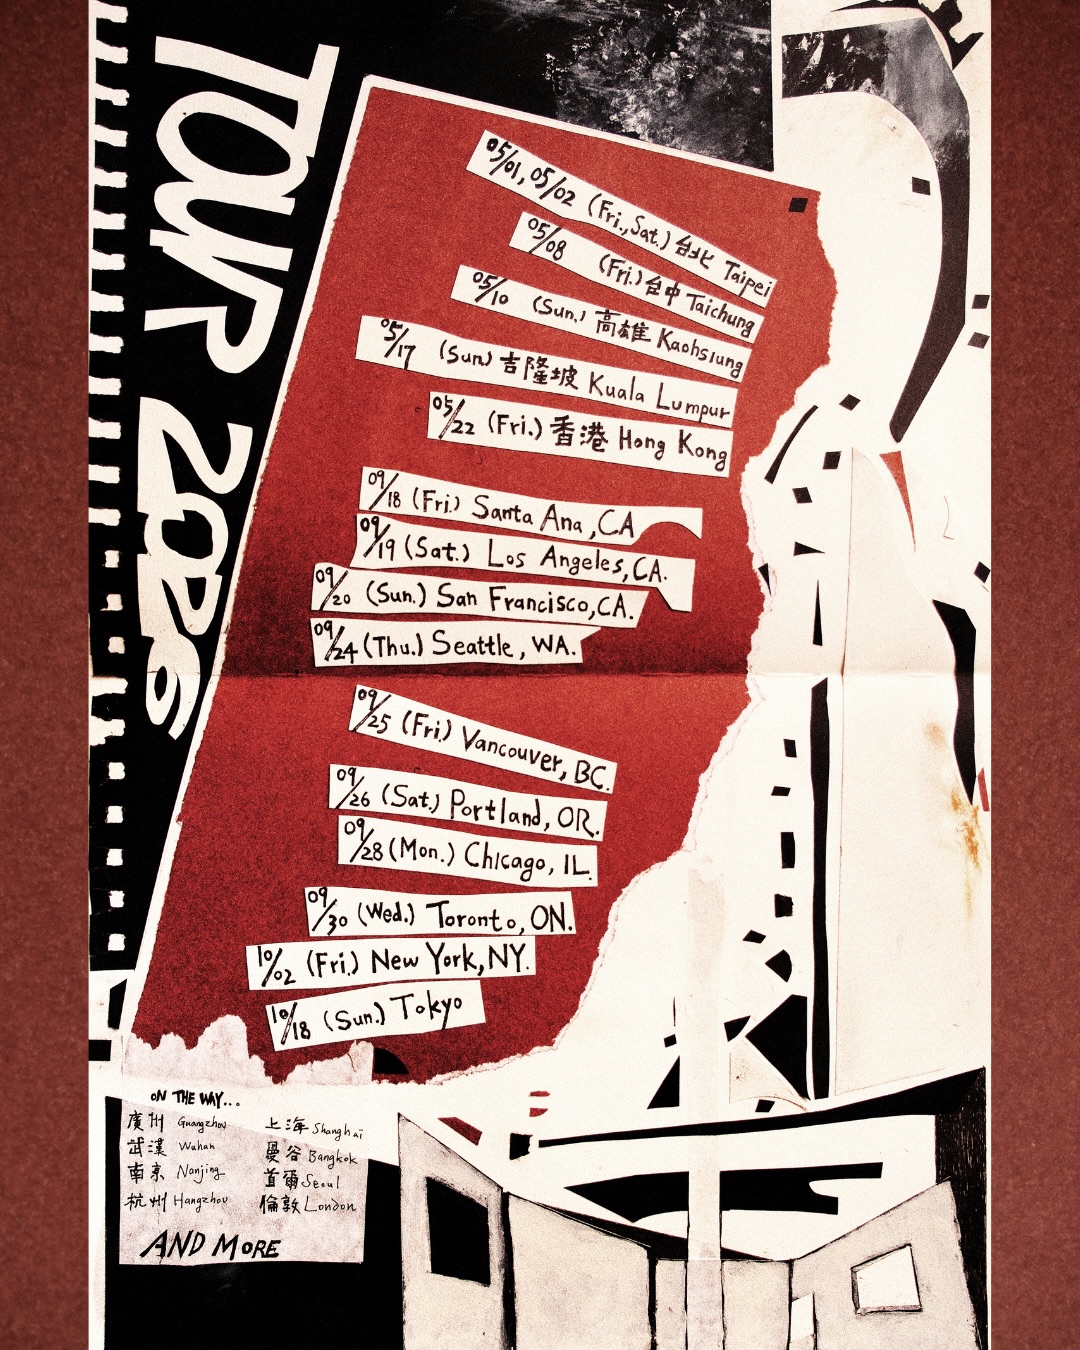 TOUR 2026
05/01, 05/02 (Fri.,Sat.) 台北 Taipei
05/08 (Fri.) 台中 Taichung
05/10 (Sun.) 高雄 Kaohsiung
05/17 (Sun) 吉隆坡 Kuala Lumpur
05/22 (Fri.) 香港 Hong Kong
09/18 (Fri.) Santa Ana, CA
09/19 (Sat.) Los Angeles, CA.
09/20 (Sun.) San Francisco, CA.
09/24 (Thu.) Seattle, WA.
09/25 (Fri.) Vancouver, BC.
09/26 (Sat.) Portland, OR.
09/28 (Mon.) Chicago, IL.
09/30 (Wed.) Toronto, ON.
10/02 (Fri.) New York, NY.
10/18 (Sun.) Tokyo
ON THE WAY...
廣州 Guangzhou
武漢 Wuhan
南京 Nanjing
杭州 Hangzhou
上海 Shanghai
曼谷 Bangkok
首爾 Seoul
倫敦 London
AND MORE